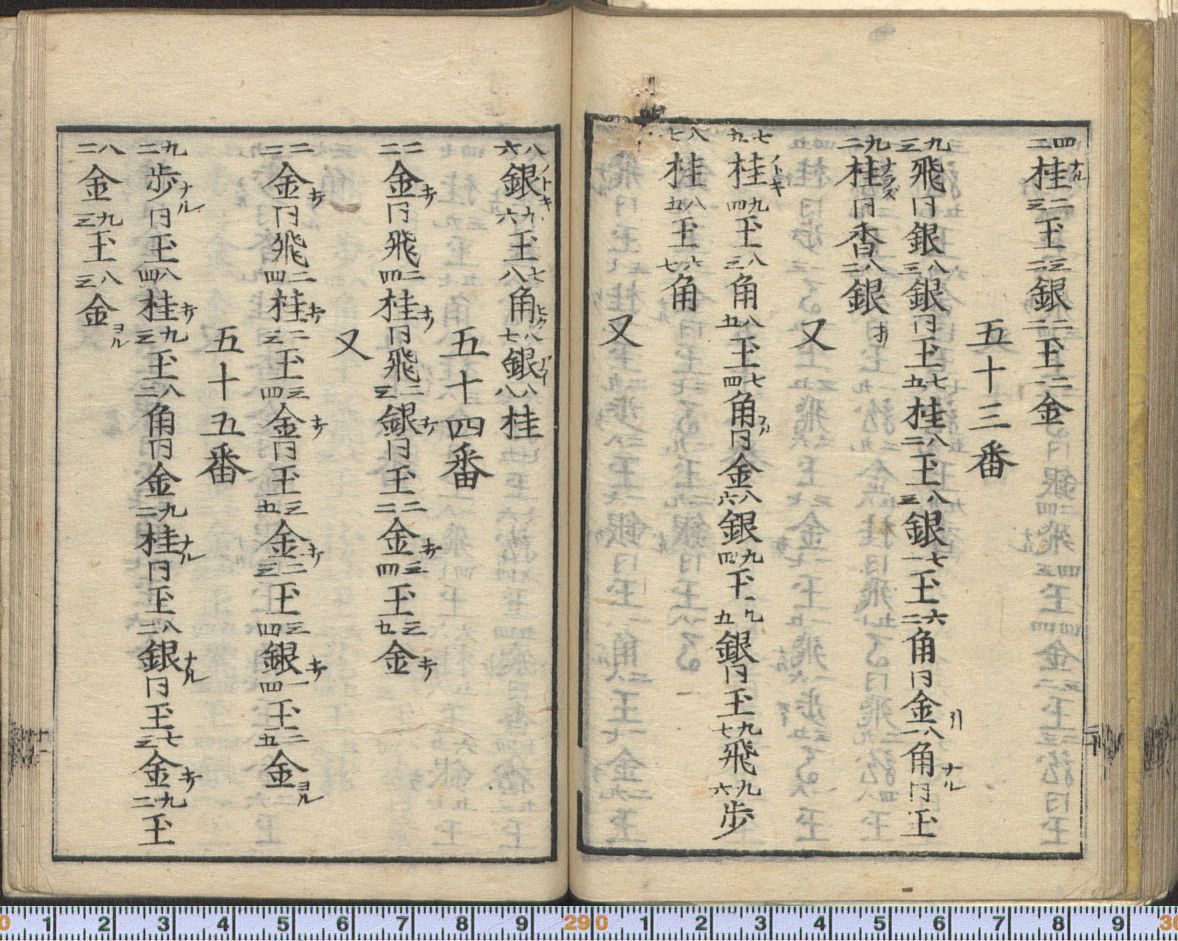 四二桂ナル二三玉三二銀一二玉二二金
五十三番
九三飛同銀八三銀同玉七五桂八二玉八三銀七一玉六二角同金引八一角ナル同玉
九二桂ナラズ同香八二銀オ
又
七九桂ノトキ九四玉八三角八五玉七四角ナル同金八六銀九四玉九五銀同玉九七飛九六歩
八七桂八五玉六七角
又
八六銀ノトキ九六玉七八角ヒケハ八七銀アイ八八桂
五十四番
二二金オ同飛二四桂オ同飛二三銀オ同玉二二金オ三四玉三九金オ
又
二二金オ同飛二四桂オ二三玉三四金オ同玉三五金オ二三玉三四銀オ一四玉二五金ヨル
五十五番
九二歩ナル同玉八四桂オ九三玉八二角同金九二桂ナル同玉八二銀ナル同玉七三金オ九二玉
八二金九三玉八三金ヨル